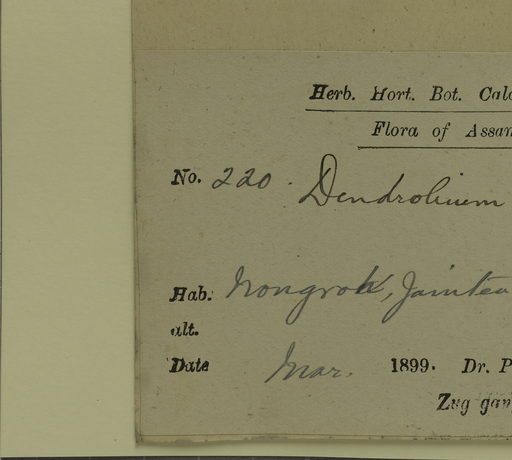 Herb. Hort. Bot. Calc
Flora of Assam
No. 220. Dendrobium
Hab. Nongrok, Jaintea
alt.
Date Mar. 1899. Dr. P
Zug gan